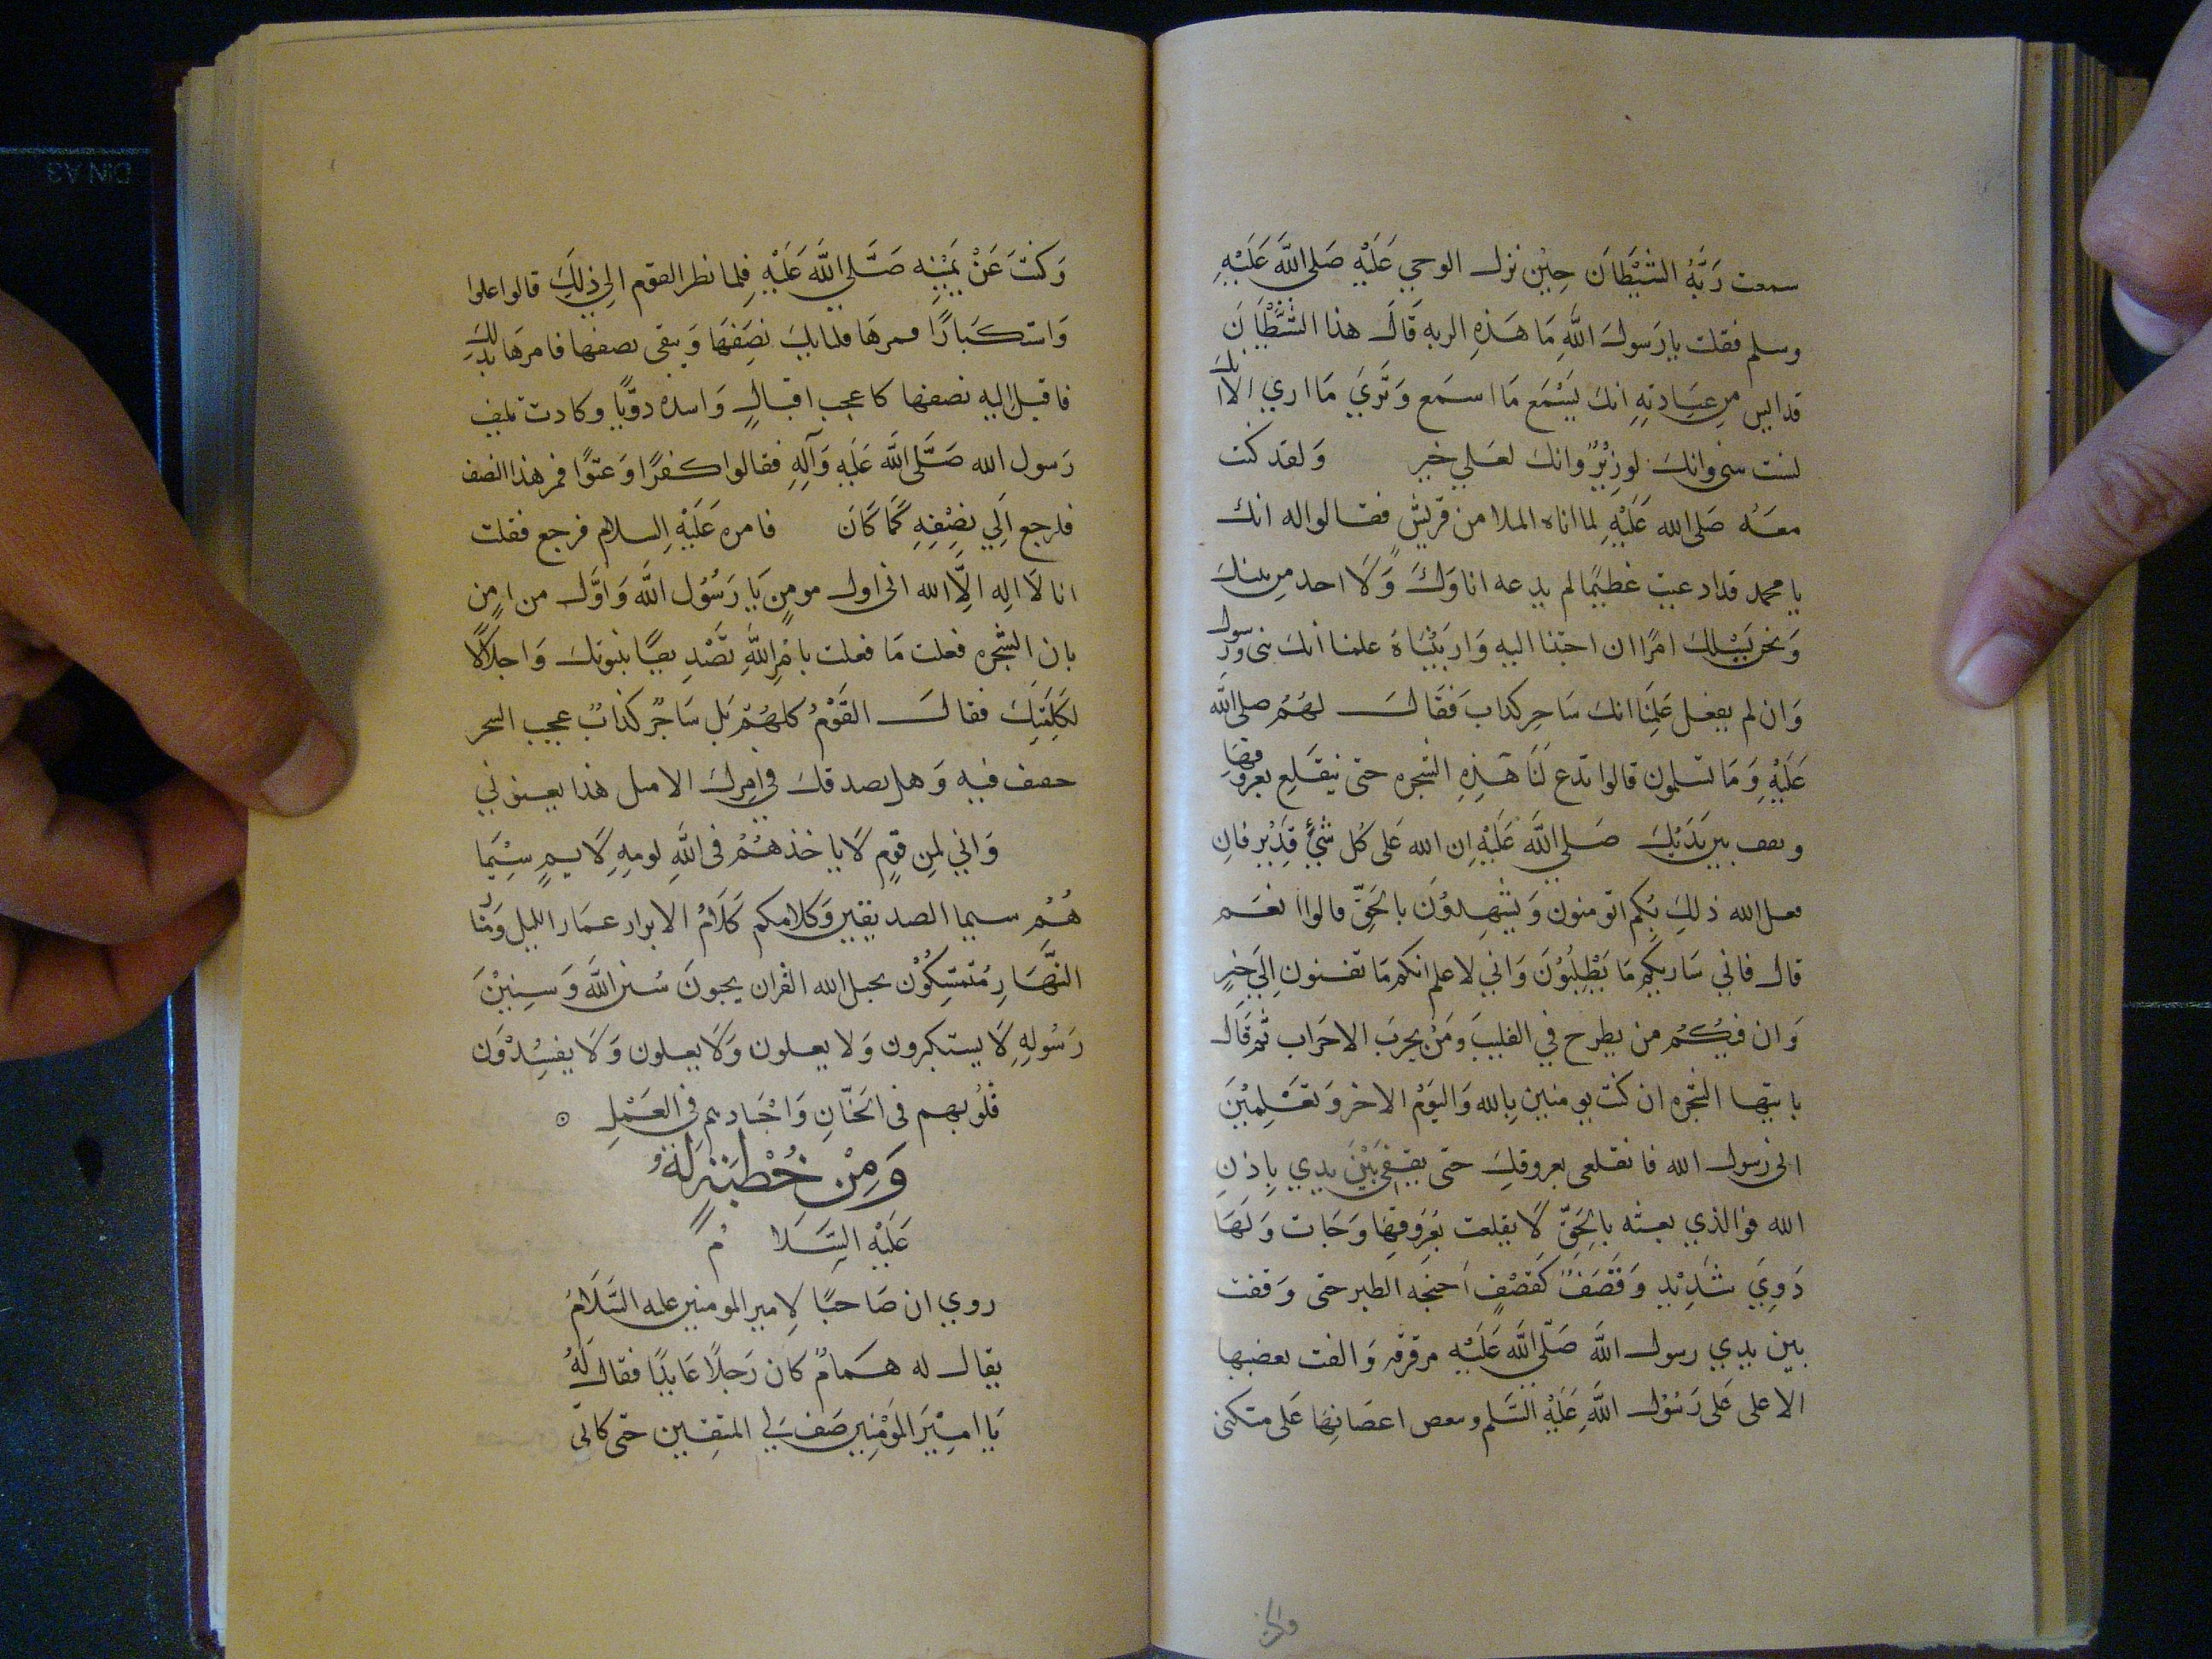 سمعت رَنَّةُ الشَّيْطَانَ حِيْنَ نزل الوحي عَلَيْهِ صَلى اللهَ عَلَيْهِ
وسلم فقلت يا رَسولَ اللهِ مَا هَذِهِ الرنه قَالَ هذا الشَّيْطَانَ
قد ايس مِن عِبَادتِهِ انك تَسْمَع مَا اسمَع وَتَرَي مَا اري الا انك
لست بنبي وانكَ لوزِيْرٌ وانكَ لعَلي خيرٍ وَلقد كنت
معَهُ صَلى الله عَلَيْهِ لما اتاه الملا من قريش فقالوا له انك
يا محمد قد ادعيت عظيمًا لم يدعه اباوَكَ وَلَا احد من بيتك
وَنحن نَسْلك امرًا ان اجبتنا اليه وَاريْتَنَاهُ علمنا انك نبى ورسول
وَان لم يفعل عَلِمْنَا انك سَاحِر كداب فَقَالَ لهَمُ صلى الله
عَلَيْهِ وَمَا تسلون قالوا تدع لَنَا هَذِهِ الشجره حتى ينقَلع بعروقهَا
ويقف بين يَدَيْكَ صَلي اللهَ عَلَيْهِ اِن الله عَلى كُل شَيْءٍ قَدِيْر فان
فعل الله ذلِكَ بكم اتومنون وَتشْهدوُنَ بالحَقّ قالوا نعَم
قال فاني سَاريكُم مَا تَطْلِبُوْنَ وَاني لاعلم انكم مَا تفيئون اِلي خيرٍ
وَان فيكُم من يطرح في القليبَ وَمَنْ يحزبَ الاحزاب ثم قَالَ
يا ايتها الشجره ان كنت تومنين بِالله وَاليَوْم الاخر وَتعْلِمِيْنَ
انى رسول الله فانقلعى بعروقكِ حتى يقفى بَيْنَ يدي بِاذنِ
الله فوالذي بعثه بالحَقّ لانقلعت بعُروقهَا وَجَات وَلهَا
دَوِيَ شَدِيْد وَقَصَفٌ كَقصْفِ اَجنحَه الطير حتى وَقفت
بين يدي رسول اللهَ صَلّى اللهَ عَلَيْهِ مرفرفه وَالقت بعضها
الاعلى عَلى رَسُوْل اللهِ عَلَيْهُ السَّلم وببعض اغصَانهَا عَلى منكبى
وَكنتَ عَنْ يمَيْنِه صَّلي اللهَ عَلَيْهِ فلما نظر القوم الي ذلِكَ قالوا علوا
وَاستكبَارًا فمرهَا فلياتك نصِفهَا وَيبقى نصفها فامرَها بذلك
فاقبل اليه نصفها كاعجب اقبالٍ وَاشده دوّيًا وكادت تلتف
رَسول الله صَّلى اللهَ عَلَيْهِ وَآلِهِ فقالوا كفرًا وَعتوًا فمر هذا النصف
فليرجع اِلَي نصِفِهِ كَمَا كَانَ فامره عَلَيْهِ السلام فرجع فقلت
انا لَا اله اِلَّا الله انى اول مومنٍ يَا رَسُوْل اللهَ وَاوَّل من امن
بان الشجره فعلت مَا فعلت بامْرِ اللهَ تَصْدِيقًا بنبوتك وَاجلَالًا
لكَلِمَتِكَ فقالَ القَوْمُ كلهُمْ بَل سَاحرٌ كذابٌ عجيب السحر
خفيف فيه وَهل يصدقكَ في امرِكَ الا مثل هذا يعنونني
وَاني لمِن قومٍ لَا ياخذهُمُ فى اللهِ لومه لَايمٍ سِيْمَا
هُمُ سيما الصديقين وَكلامهم كَلَامُ الابرار عمَار الليل وَمنار
النهَّارِ مُتمَسِكُوْن بحبل الله القران يحيونَ سُنن اللهَ وَسِنِيْنَ
رَسُولِهِ لَا يستكبرون وَلا يعلون وَلَا يغلون وَلَا يفسِدُوْنَ
قلوُبهم فى الجَنّانِ وَاجْسَادهم فى العَمْلِ
وَمِنْ خُطْبَةٍ لَهُ
عَلَيْهِ السَّلَامُ
روي ان صَاحبًا لِامير المومنين عليه السَّلَامُ
يقال له همَامٌ كان رَجلًا عَابدًا فقال لَهُ
يَا امِيْرَ المَوْمنِين صَف لي المتقين حتى كاني